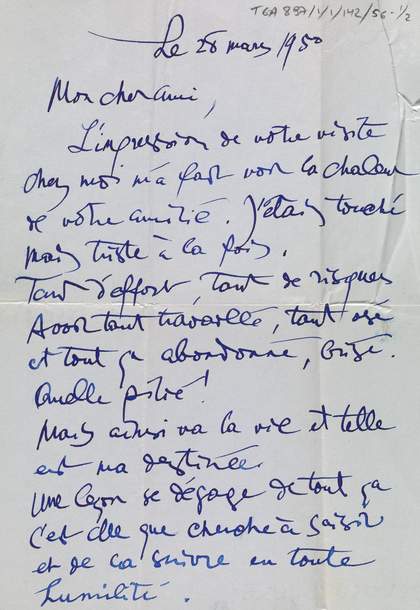 TGA 897/1/1/142/56-1/2
Le 28 mars 1950
Mon cher ami,
L'impression de votre visite
chez moi m'a fait voir la chaleur
de votre amitié. J'étais touché
mais triste à la fois.
Tant d'effort, tant de risques
Avoir tant travaillé, tant osé
et tout ça abandonné, brisé.
Quelle pitié!
Mais ainsi va la vie et telle
est ma destinée.
Une leçon se dégage de tout ça
c'est elle que cherche à saisir
et de la suivre en toute
humilité.